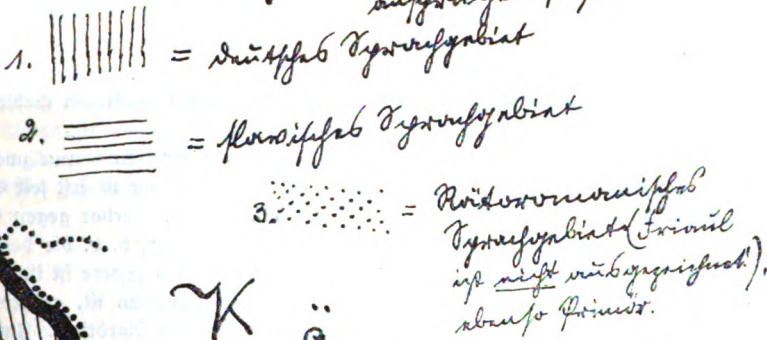 1. = deutsches Sprachgebiet
2. = slawisches Sprachgebiet
3. = Rätoromanisches
Sprachgebiet (Friaul
ist nicht ausgezeichnet),
ebenso
K